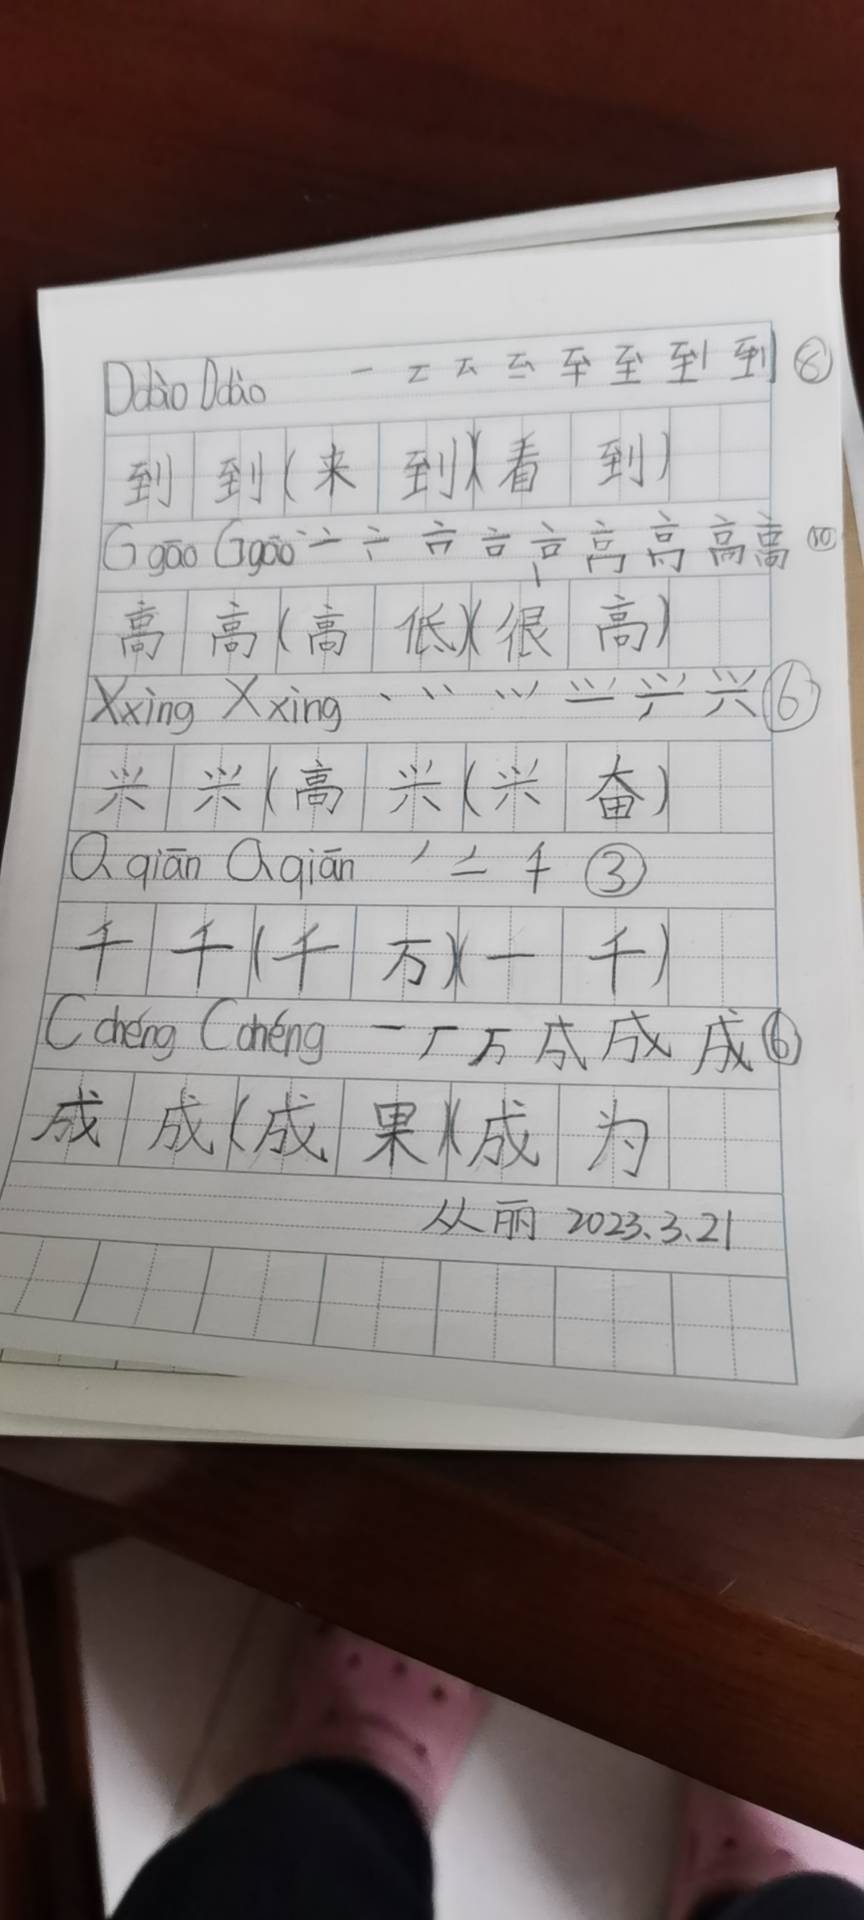 Ddào Ddào 一 到 ⑧
到 到(来 到)(看 到)
Ggāo Ggāo 高 ⑩
高 高(高 低)(很 高)
Xxìng Xxìng 兴 ⑥
兴 兴(高 兴(兴 奋)
Qqiān Qqiān 千 ③
千 千(千 万)(一 千)
Cchéng Cchéng 一 厂 成 ⑥
成 成(成 果)(成 为
从丽 2023.3.21